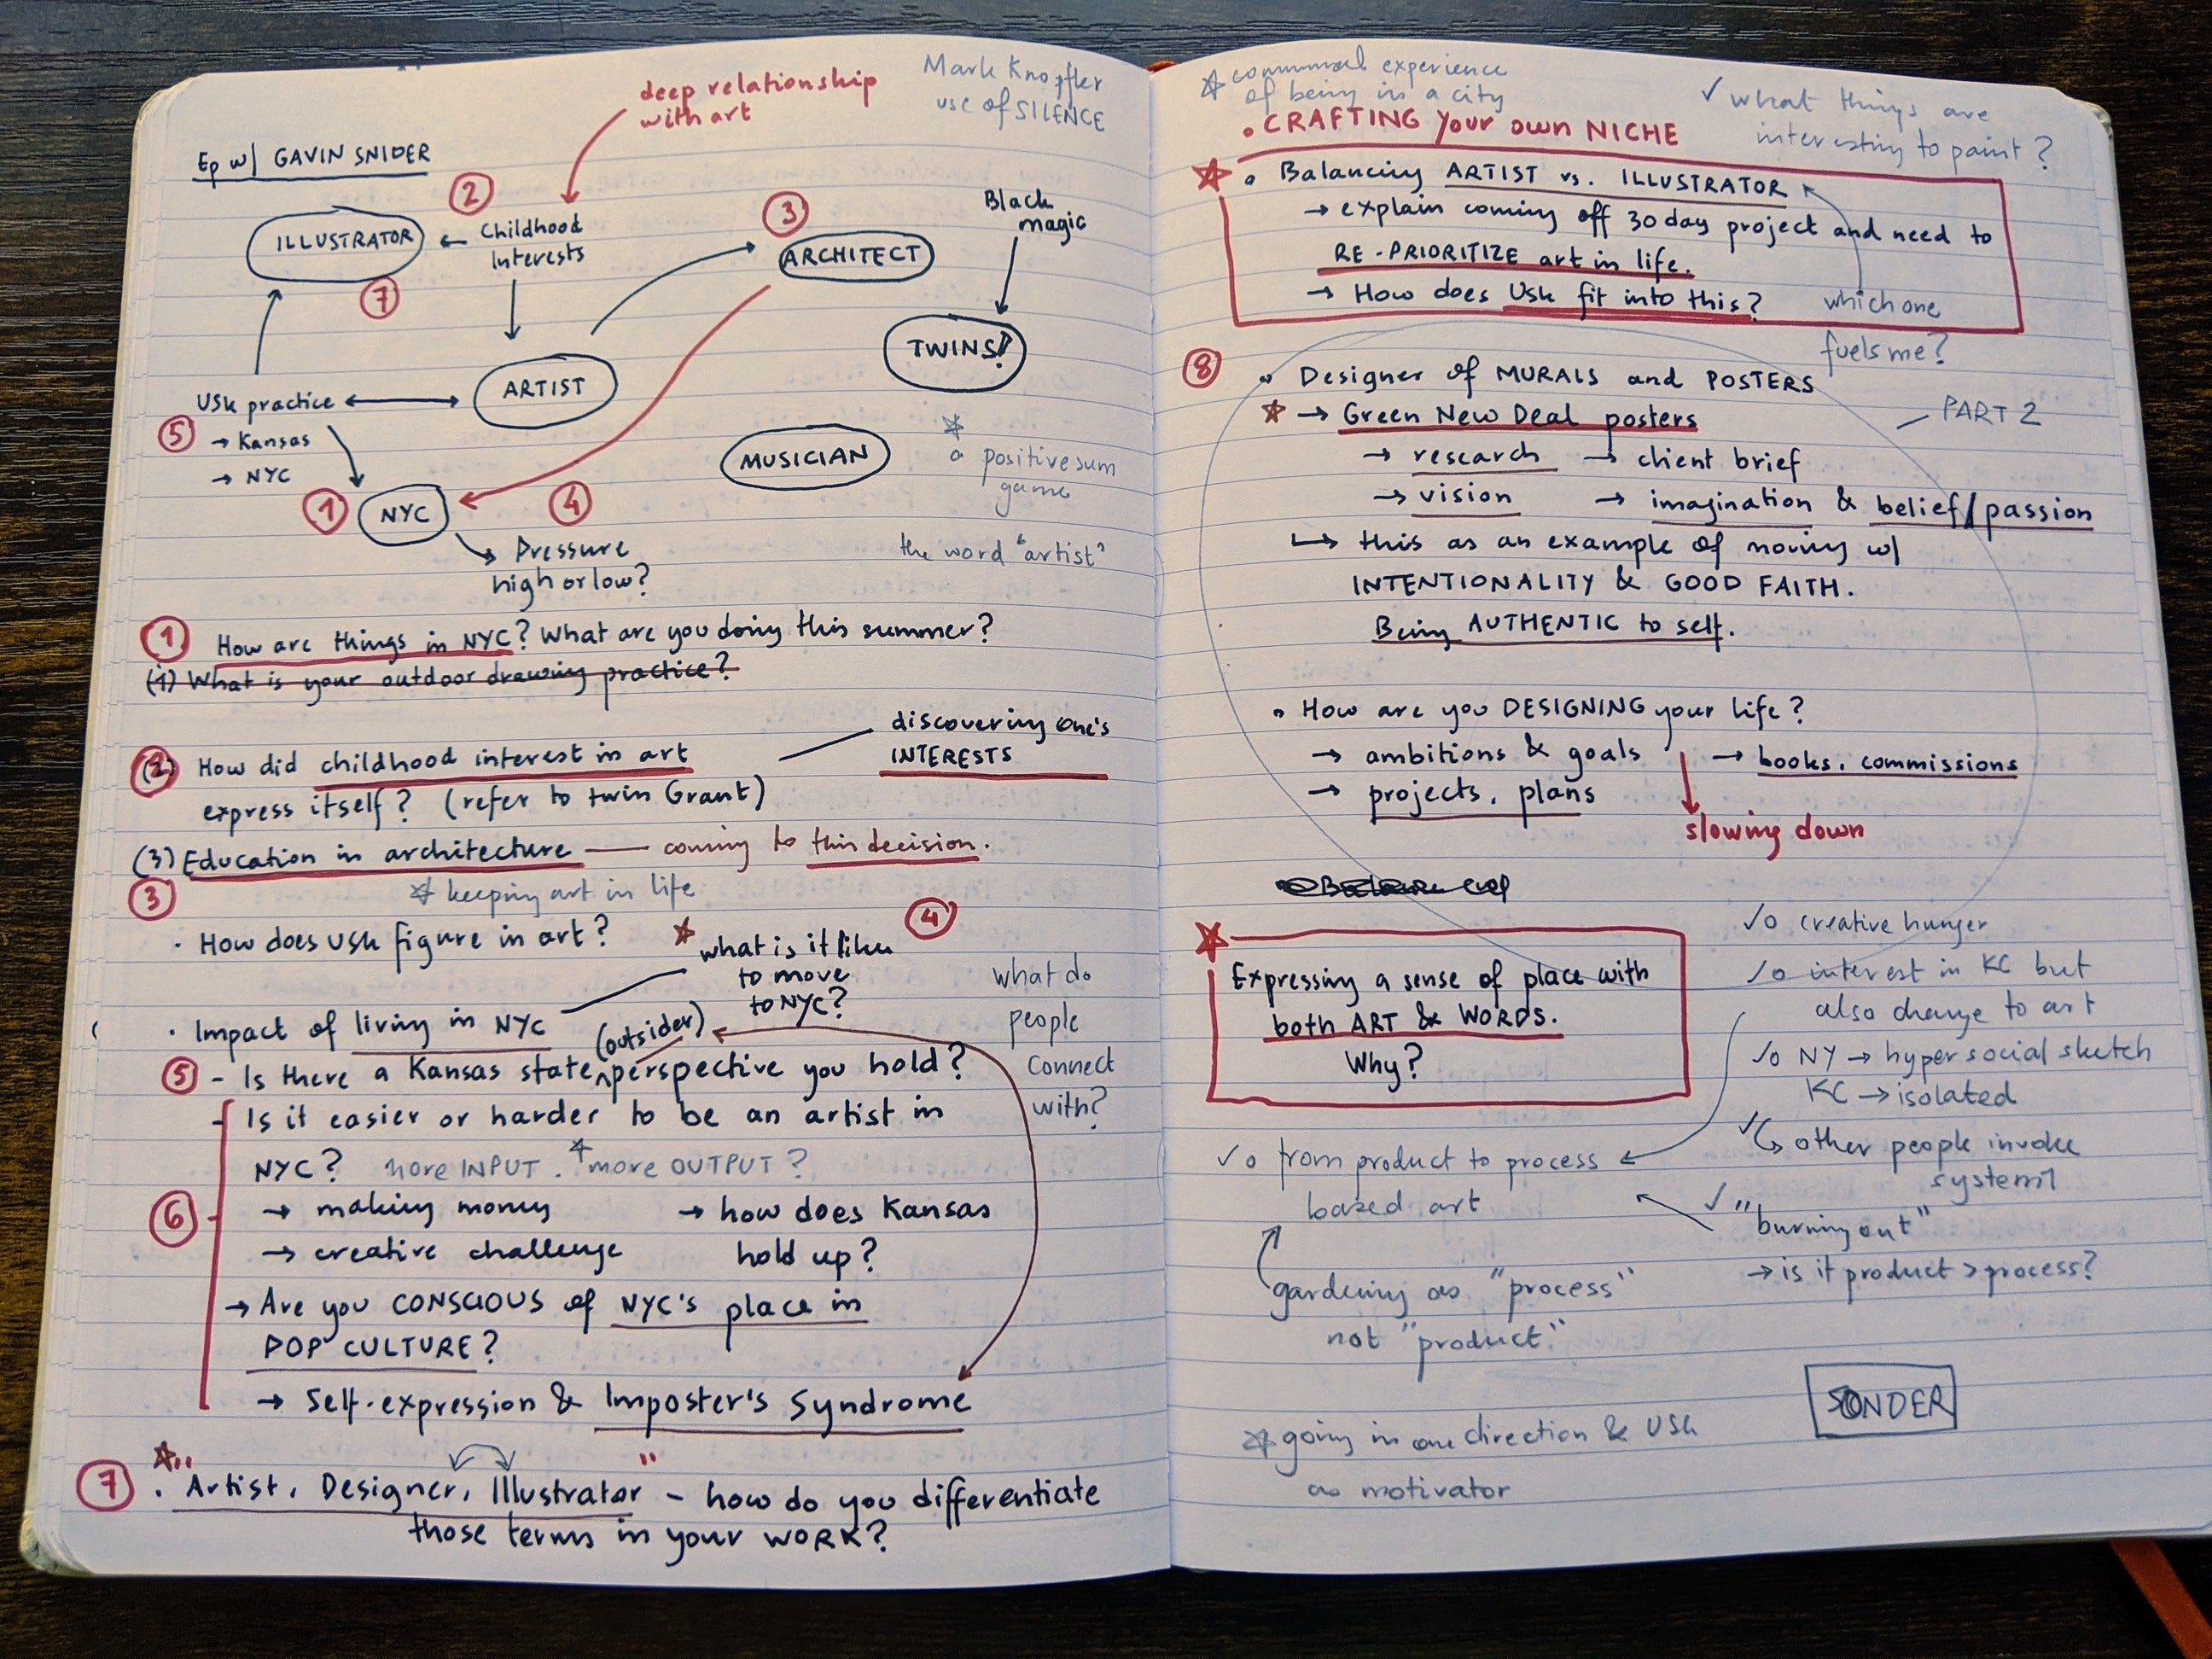 Mark Knopfler
use of SILENCE
deep relationship
with art
Ep w/ GAVIN SNIDER
2
3
Black
magic
ILLUSTRATOR
Childhood
Interests
ARCHITECT
7
TWINS!
ARTIST
USk practice
5
→ Kansas
→ NYC
MUSICIAN
a positive sum
game
1
NYC
4
Pressure
high or low?
the word "artist"
1 How are things in NYC? What are you doing this summer?
(1) What is your outdoor drawing practice?
discovering one's
INTERESTS
(2) How did childhood interest in art
express itself? (refer to twin Grant)
(3) Education in architecture — coming to this decision.
3
keeping art in life
4
· How does USk figure in art?
what is it like
to move
to NYC?
what do
people
connect
with?
· Impact of living in NYC
(outsider)
5 - Is there a Kansas state perspective you hold?
- Is it easier or harder to be an artist in
NYC? more INPUT. more OUTPUT?
6
→ making money
→ how does Kansas
hold up?
→ creative challenge
→ Are you CONSCIOUS of NYC's place in
POP CULTURE?
→ Self-expression & Imposter's Syndrome
7 · "Artist, Designer, Illustrator" - how do you differentiate
those terms in your WORK?
communal experience
of being in a city
✓ what things are
interesting to paint?
• CRAFTING your own NICHE
• Balancing ARTIST vs. ILLUSTRATOR
→ explain coming off 30 day project and need to
RE-PRIORITIZE art in life.
→ How does USk fit into this?
which one
fuels me?
8
• Designer of MURALS and POSTERS
PART 2
→ Green New Deal posters
→ research → client brief
→ vision → imagination & belief/passion
↳ this as an example of moving w/
INTENTIONALITY & GOOD FAITH.
Being AUTHENTIC to self.
• How are you DESIGNING your life?
→ ambitions & goals
→ books, commissions
→ projects, plans
slowing down
Expressing a sense of place with
both ART & WORDS.
Why?
✓o creative hunger
✓o interest in KC but
also change to art
✓o NY → hyper social sketch
KC → isolated
✓↳ other people invoke
system 1
✓o from product to process
based art
✓ "burning out"
→ is it product > process?
gardening as "process"
not "product"
SONDER
going in one direction & USk
as motivator